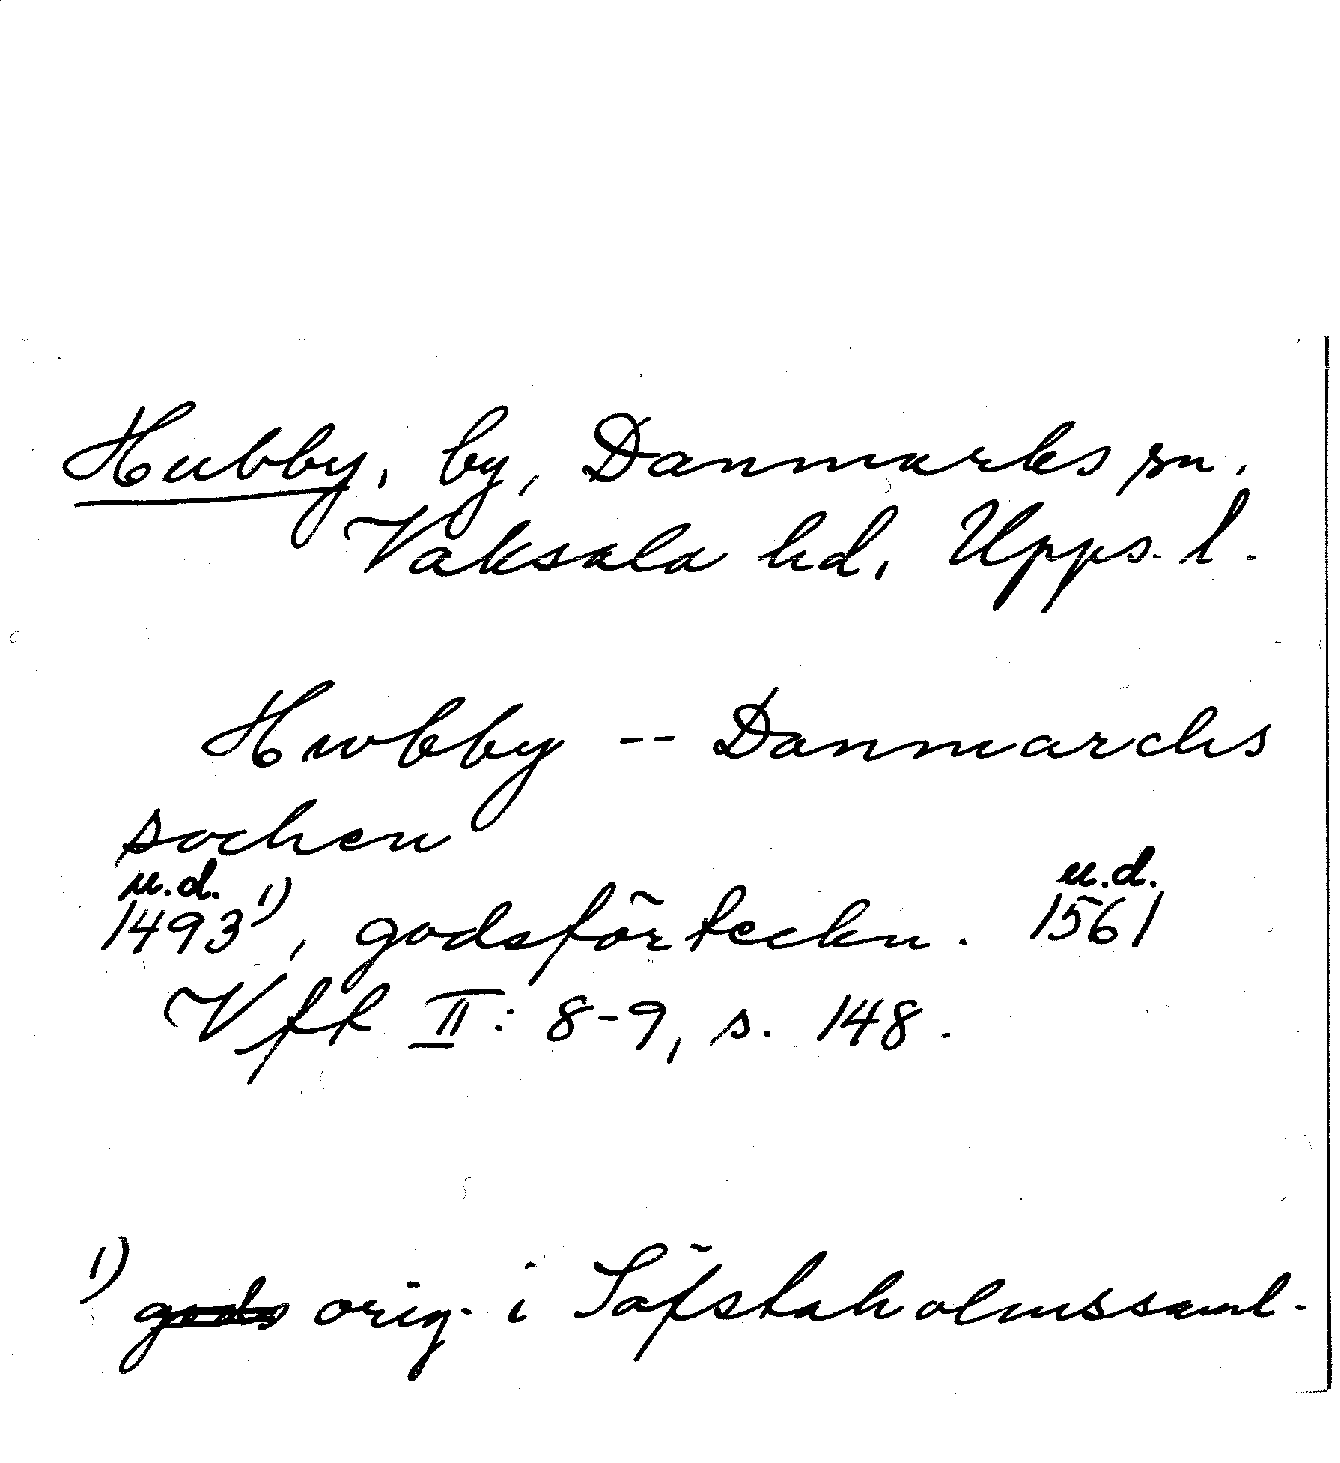 Hubby, by, Danmarks sn.
Vaksala hd, Upps. l.
Hwbby -- Danmarchs
sochen
u.d. u.d.
1493¹⁾, godsförteckn. 1561
Vff II: 8-9, s. 148.
¹⁾ gods orig. i Säfstaholmssaml.